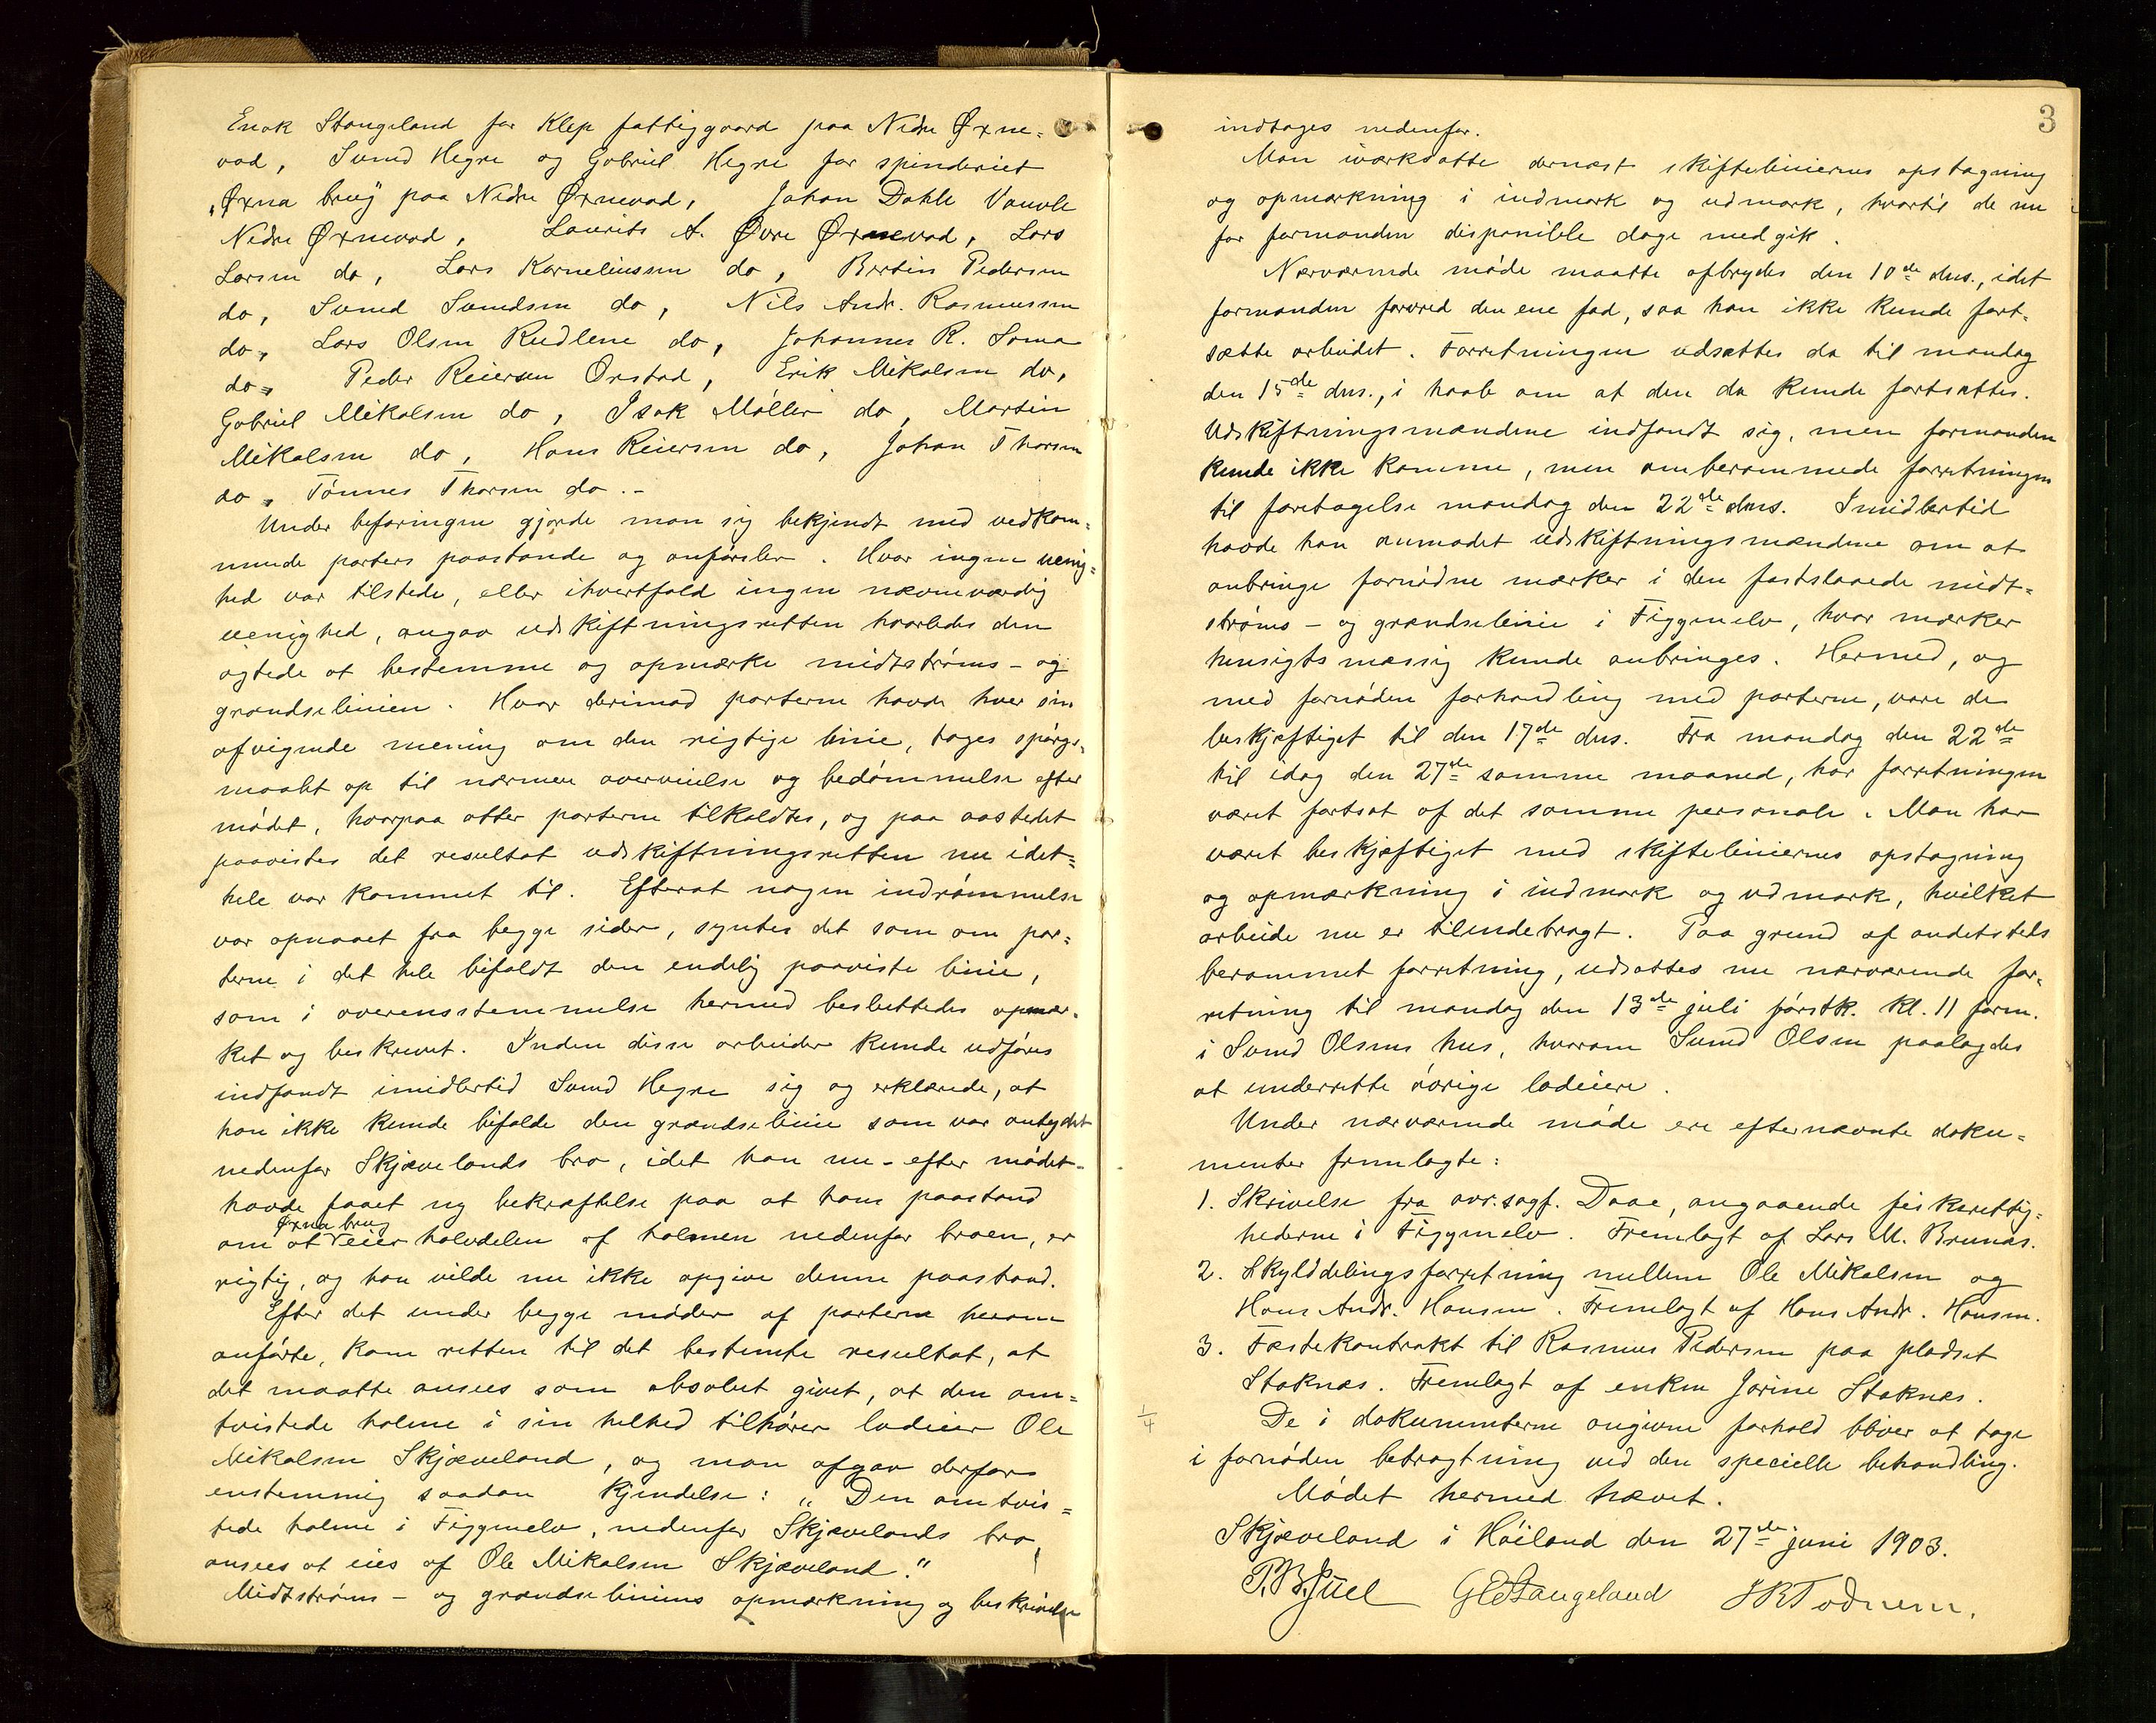 Enok Stangeland for Klep fattiggaard paa Nedre Øxne-
vad, Svend Hegre og Gabriel Hegre for spinderiet
„Øxna brug" paa Nedre Øxnevad, Johan Dahle Vauvle
Nedre Øxnevad, Laurits A. Øvre Øxnevad, Lars
Larsen do, Lars Korneliussen do, Bertin Pedersen
do, Svend Svendsen do, Nils Andr. Rasmussen
do, Lars Olsen Rudlene do, Johannes R. Soma
do, Peder Reiersen Orstad, Erik Mikalsen do,
Gabriel Mikalsen do, Isak Møller do, Martin
Mikalsen do, Hans Reiersen do, Johan Thorsen
do, Tønnes Thorsen do.-
Under befaringen gjorde man sig bekjendt med vedkom-
mende parters paastande og anførsler. Hvor ingen uenig-
hed var tilstede, eller ihvertfald ingen nævneværdig
uenighed, angav udskiftningsretten hvorledes den
agtede at bestemme og opmærke midtstrøms- og
grændselinien. Hvor derimod parterne havde hver sin
afvigende mening om den rigtige linie, toges spørgs-
maalet op til nærmere overveielse og bedømmelse efter
mødet, hvorpaa atter parterne tilkaldtes, og paa aastedet
paavistes det resultat udskiftningsretten nu idet-
hele var kommet til. Efterat nogen indrømmelse
var opnaaet fra begge sider, syntes det som om par-
terne i det hele bifaldt den endelig paaviste linie,
som i overensstemmelse hermed besluttedes opmær-
ket og beskrevet. Inden disse arbeider kunde udføres
indfandt imidlertid Svend Hegre sig og erklærede, at
han ikke kunde bifalde den grændselinie som var antydet
nedenfor Skjævelands bro, idet han nu - efter mødet -
havde faaet ny bekræftelse paa at hans paastand
Øxna brug
om at eier halvdelen af holmen nedenfor broen, er
rigtig, og han vilde nu ikke opgive denne paastand.
Efter det under begge møder af parterne herom
anførte, kom retten til det bestemte resultat, at
det maatte ansees som absolut givet, at den om-
tvistede holme i sin helhed tilhører lodeier Ole
Mikalsen Skjæveland, og man afgav derfor
enstemmig saadan kjendelse: „Den omtvis-
tede holme i Figgenelv, nedenfor Skjævelands bro
ansees at eies af Ole Mikalsen Skjæveland."
Midtstrøms- og grændseliniens opmærkning og beskrivelse
3
indtages nedenfor.
Man iværksatte dernæst skiftelinierns opstagning
og opmærkning i indmark og udmark, hvortil de nu
for formanden disponible dage medgik.
Nærværende møde maatte afbrydes den 10de dns., idet
formanden forvred den ene fod, saa han ikke kunde fort-
sætte arbeidet. Forretningen udsattes da til mandag
den 15de dns., i haab om at den da kunde fortsættes.
Udskiftningsmændene indfandt sig, men formanden
kunde ikke komme, men omberammede forretningen
til foretagelse mandag den 22de dns. Imidlertid
havde han anmodet udskiftningsmændene om at
anbringe fornødne mærker i den fastslaaede midt-
strøms- og grændselinie i Figgenelv, hvor mærker
hensigtsmæssig kunde anbringes. Hermed, og
med fornøden forhandling med parterne, vare de
beskjæftiget til den 17de dns. Fra mandag den 22de
til idag den 27de samme maaned, har forretningen
været fortsat af det samme personale. Man har
været beskjæftiget med skiftelinierns opstagning
og opmærkning i indmark og udmark, hvilket
arbeide nu er tilendebragt. Paa grund af andetsteds
berammet forretning, udsattes nu nærværende for-
retning til mandag den 13de juli førstk. kl. 11 form.
i Svend Olsens hus, hvorom Svend Olsen paalagdes
at underrette øvrige lodeiere.
Under nærværende møde ere efternævnte doku-
menter fremlagte:
1. Skrivelse fra ovr.sagf. Daae, angaaende fiskerettig-
hederne i Figgenelv. Fremlagt af Lars M. Brunæs.
2. Skylddelingsforretning mellem Ole Mikalsen og
Hans Andr. Hansen. Fremlagt af Hans Andr. Hansen.
3. Fæstekontrakt til Rasmus Pedersen paa pladset
Stoknæs. Fremlagt af enken Jorine Stoknæs.
1/4
De i dokumenterne angivne forhold bliver at tage
i fornøden betragtning ved den specielle behandling.
Mødet hermed hævet.
Skjæveland i Høiland den 27de juni 1903.
P. B. Juel G E Stangeland J B Todnem.